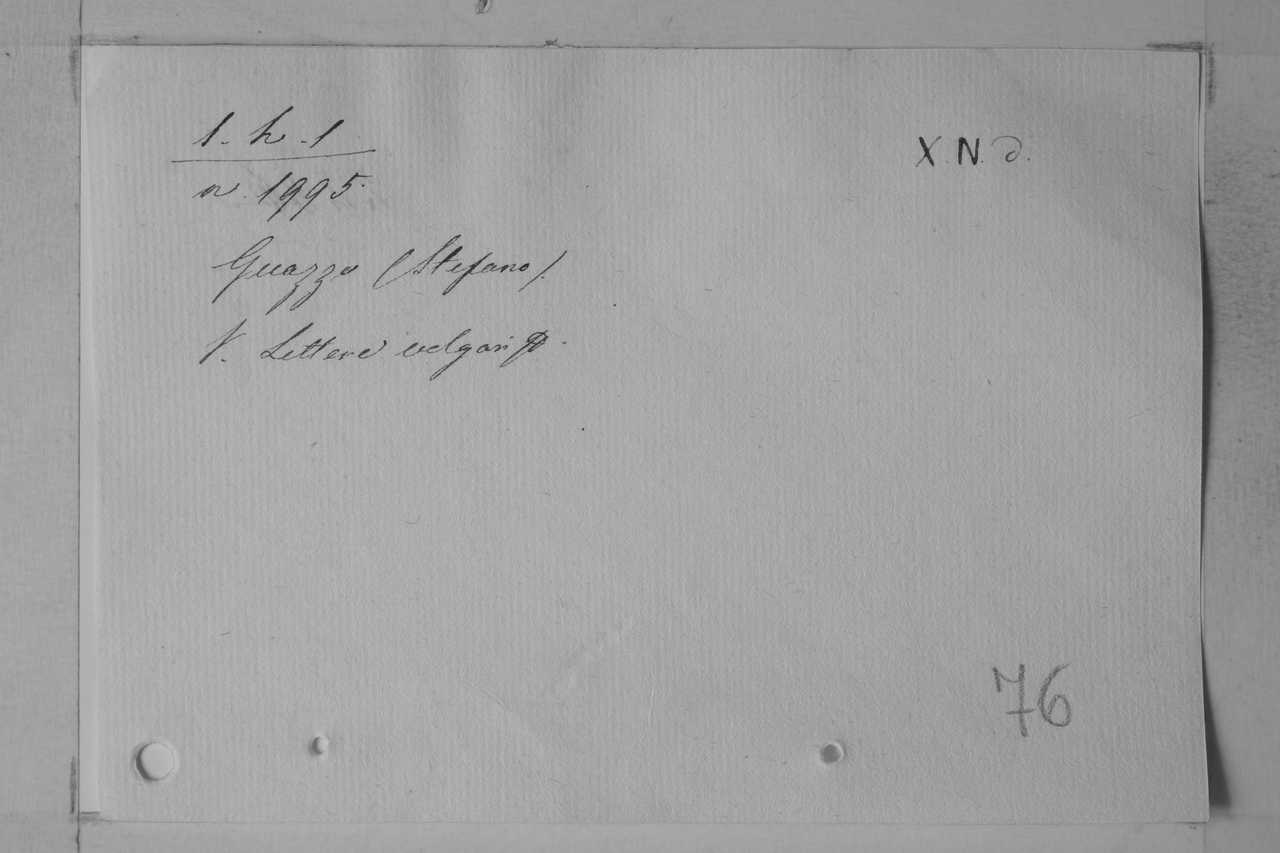 1. h. 1
X. N. d.
n. 1995.
Guazzo (Stefano).
V. Lettere volgari
76